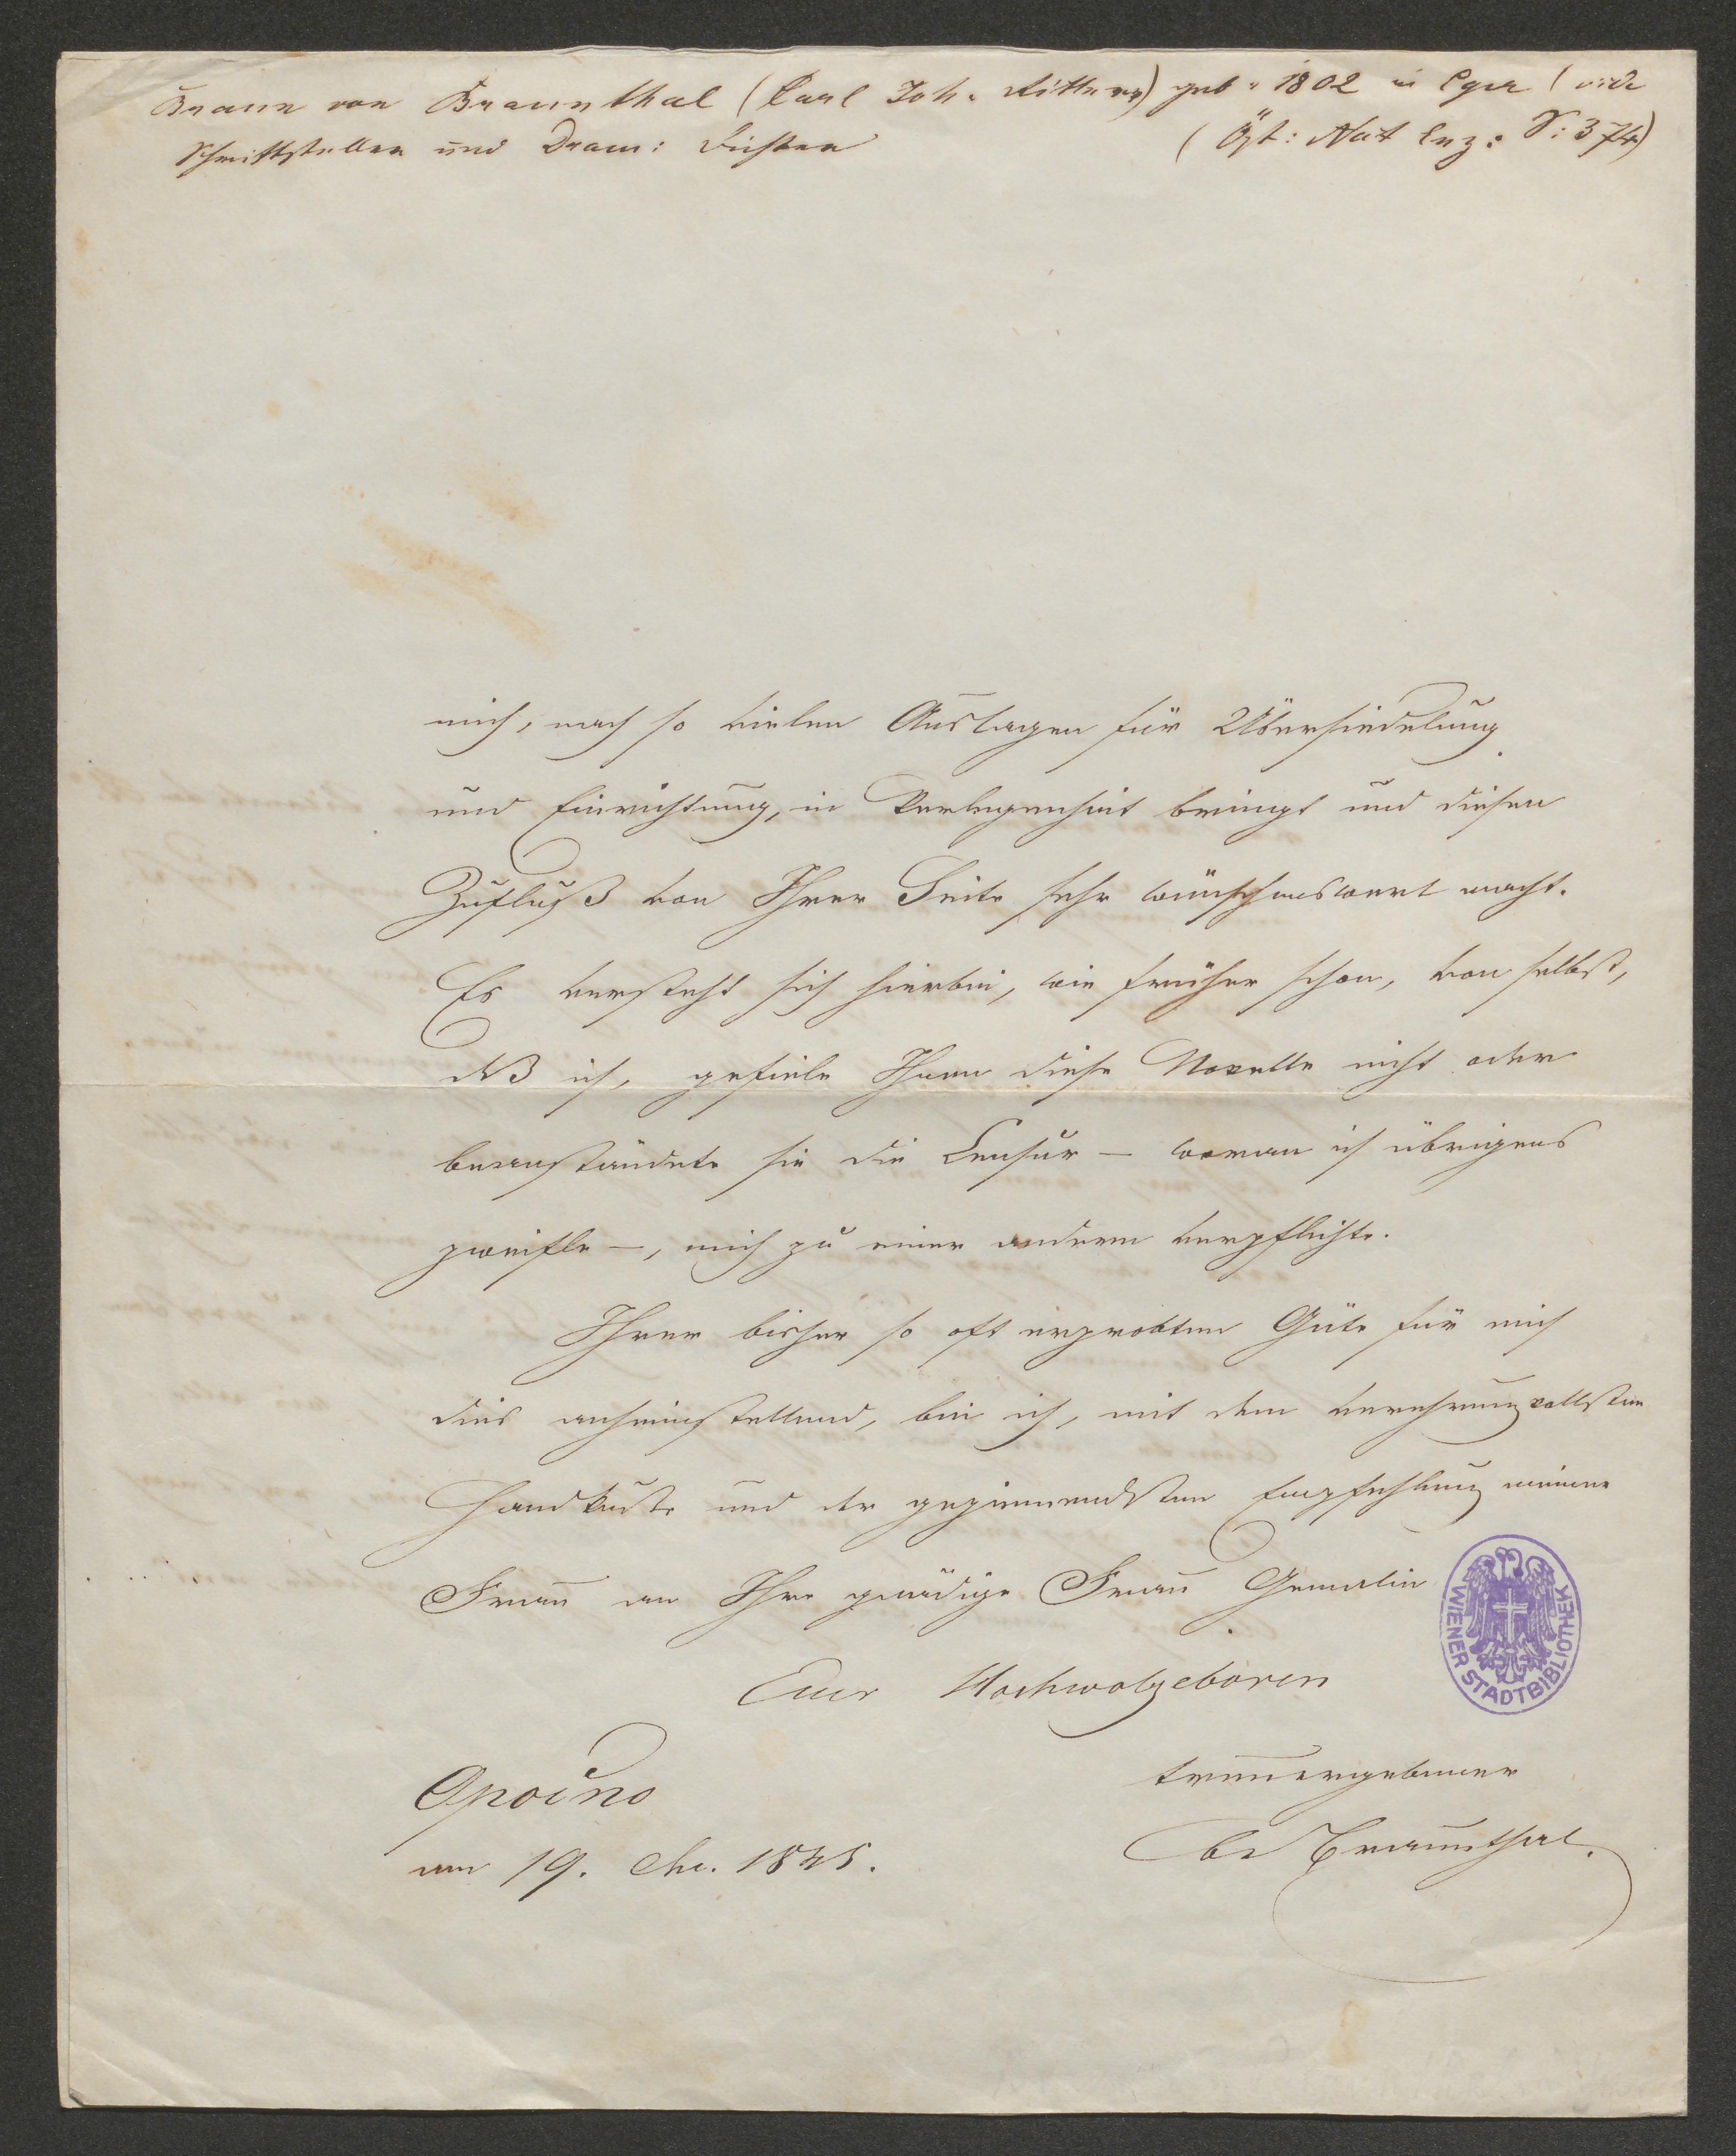 Braun von Braunthal (Carl Joh. Ritter v) geb. 1802 in Eger (vide
Schriftsteller und Dram: Dichter (Öst: Nat Enz: S: 374)
mich, nach so vielen Auslagen für Übersiedelung
und Einrichtung, in Verlegenheit bringt und diesen
Zufluß von Ihrer Seite sehr wünschenswert macht.
Es versteht sich hierbei, wie früher schon, von selbst,
daß ich, gefiele Ihnen diese Novelle nicht oder
beanständete sie die Censur – woran ich übrigens
zweifle –, mich zu einer andern verpflichte.
Ihrer bisher so oft erprobten Güte für mich
dies anheimstellend, bin ich, mit dem verehrungvollsten
Handkuße und der geziemendsten Empfehlung meiner
Frau an Ihre gnädige Frau Gemalin
Euer Hochwolgeboren
treuergebener
Opočno
am 19. 1845.
Braunthal.
WIENER STADTBIBLIOTHEK